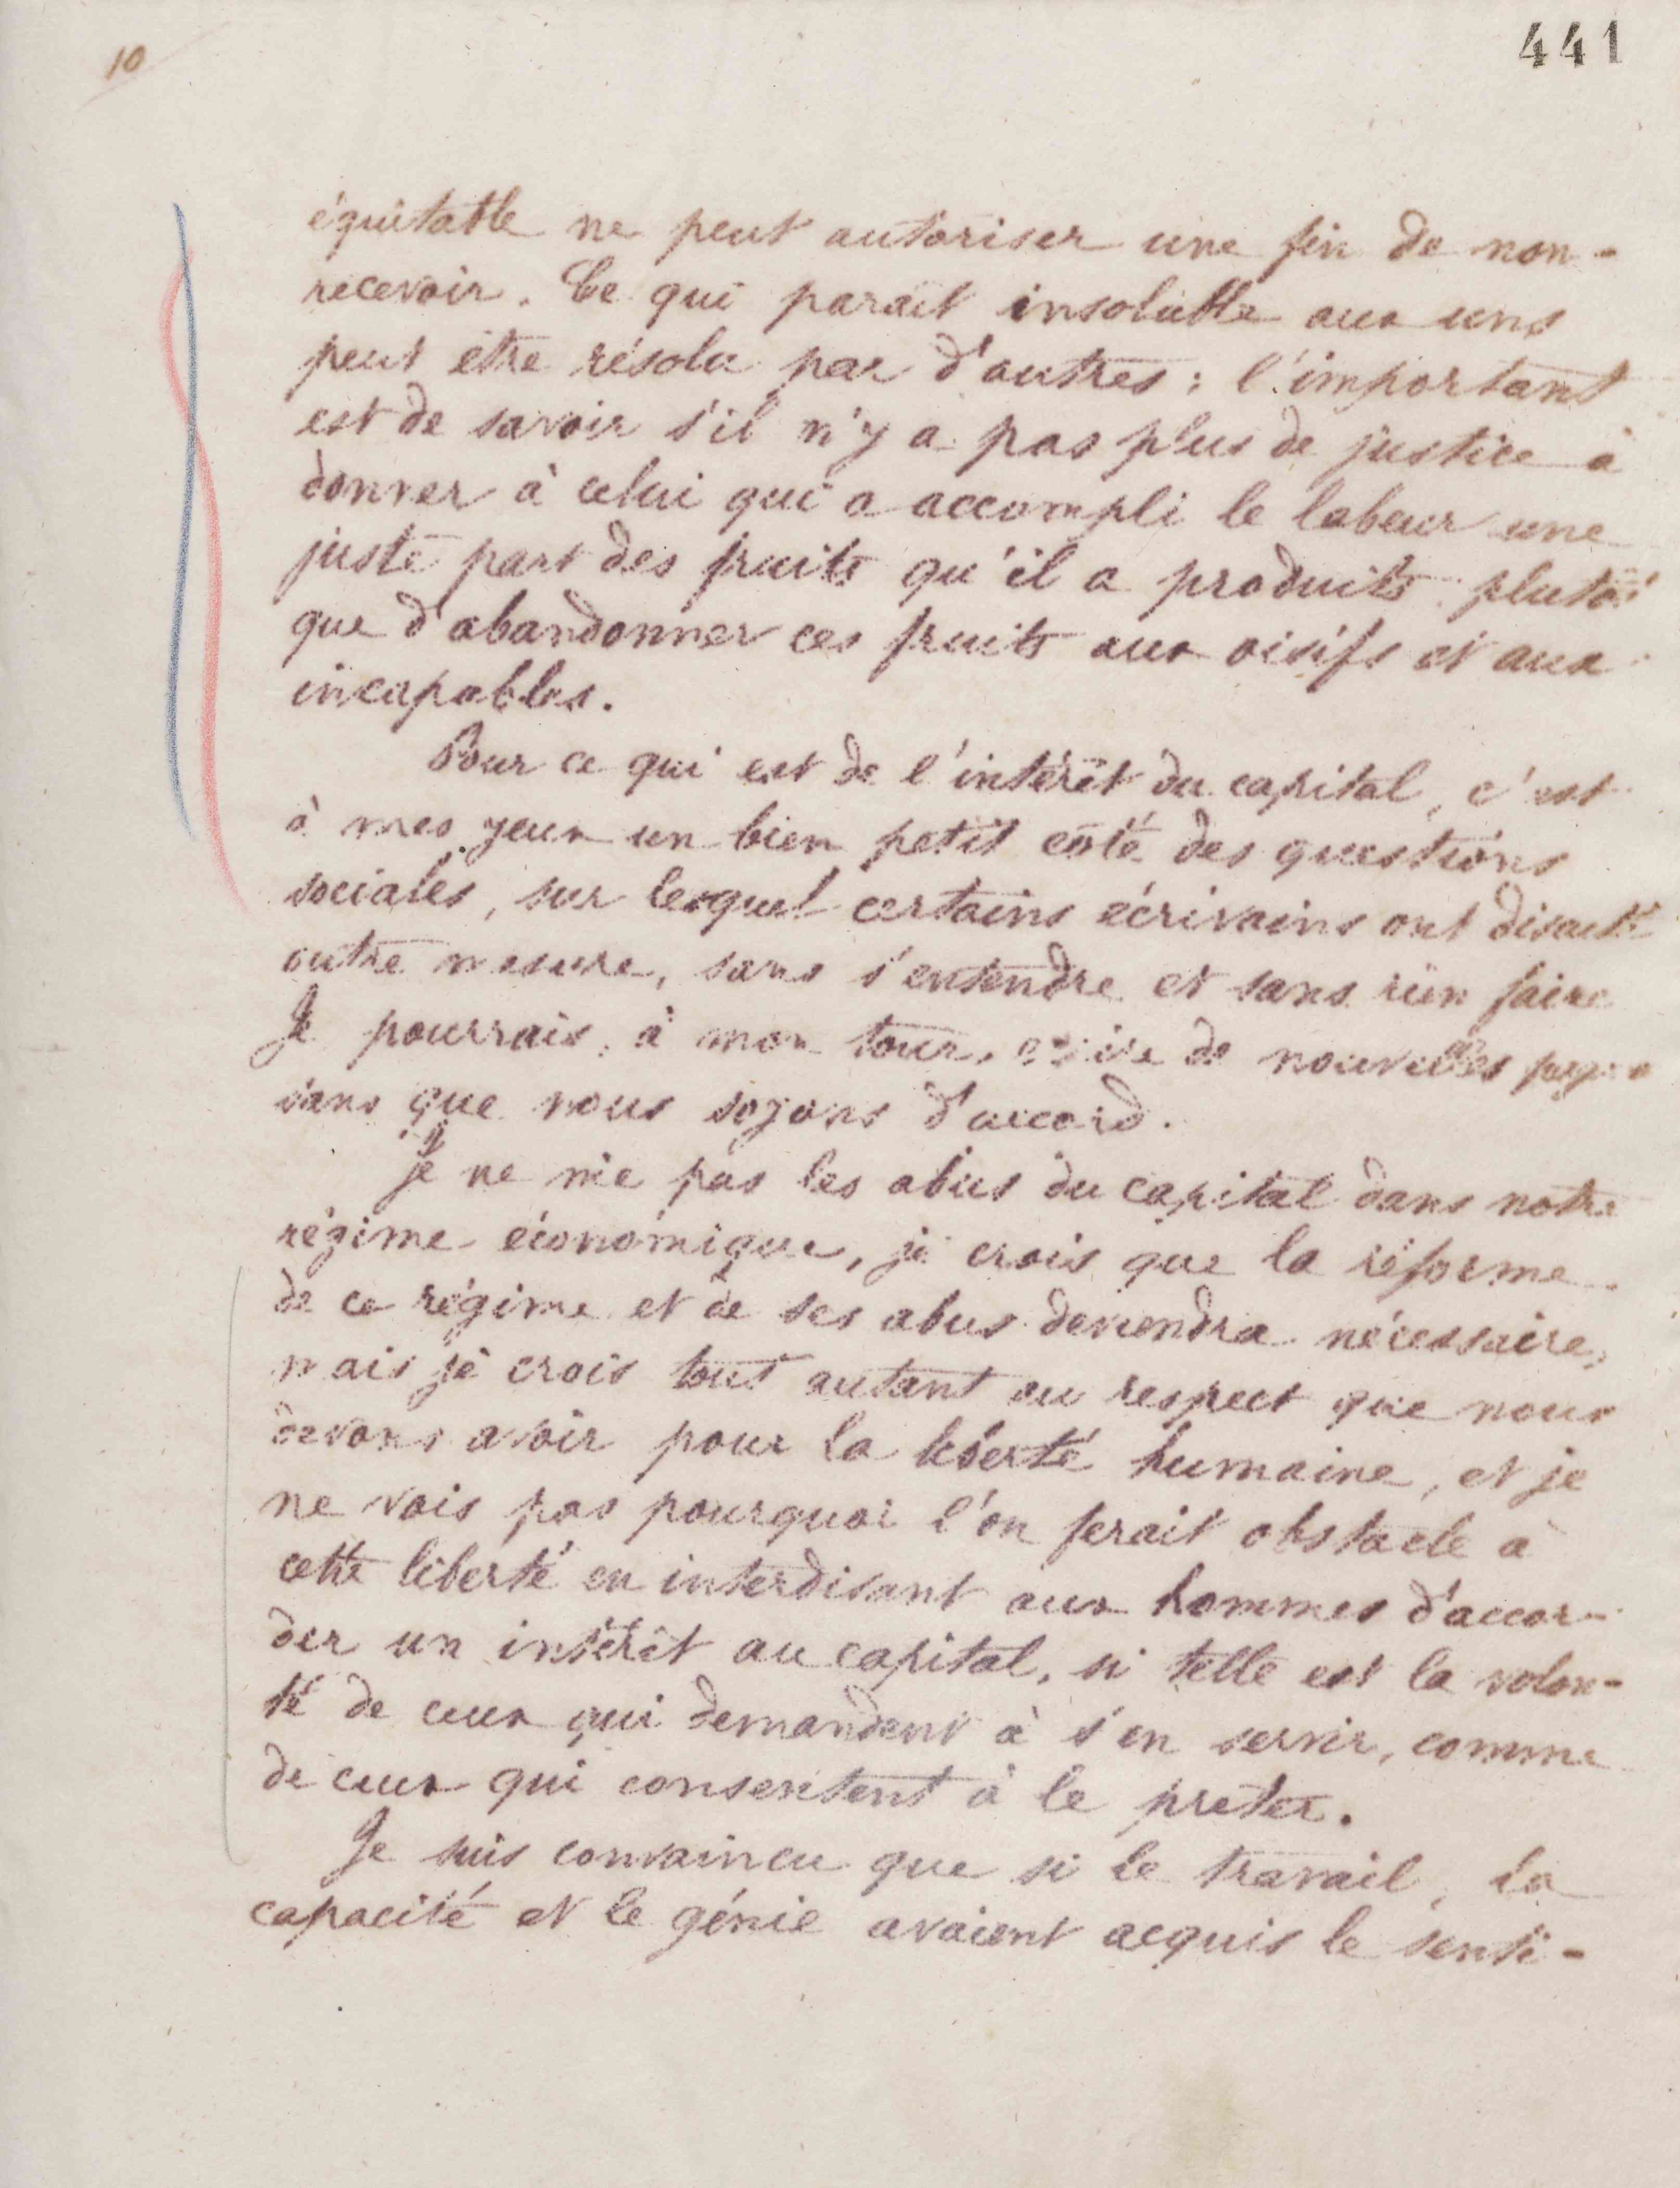 10
441
équitable ne peut autoriser une fin de non-
recevoir. Ce qui paraît insoluble aux uns
peut être résolu par d'autres ; l'important
est de savoir s'il n'y a pas plus de justice à
donner à celui qui a accompli le labeur une
juste part des fruits qu'il a produits plutôt
que d'abandonner ces fruits aux oisifs et aux
incapables.
Pour ce qui est de l'intérêt du capital, c'est
à mes yeux un bien petit côté des questions
sociales, sur lequel certains écrivains ont discuté
outre mesure, sans s'entendre et sans rien faire
Je pourrais, à mon tour, écrire de nouvelles pages
sans que nous soyons d'accord.
Je ne nie pas les abus du capital dans notre
régime économique, je crois que la réforme
de ce régime et de ses abus deviendra nécessaire,
mais je crois tout autant au respect que nous
devons avoir pour la liberté humaine, et je
ne vois pas pourquoi l'on ferait obstacle à
cette liberté en interdisant aux hommes d'accor-
der un intérêt au capital, si telle est la volon-
té de ceux qui demandent à s'en servir, comme
de ceux qui consentent à le prêter.
Je suis convaincu que si le travail, la
capacité et le génie avaient acquis le senti-